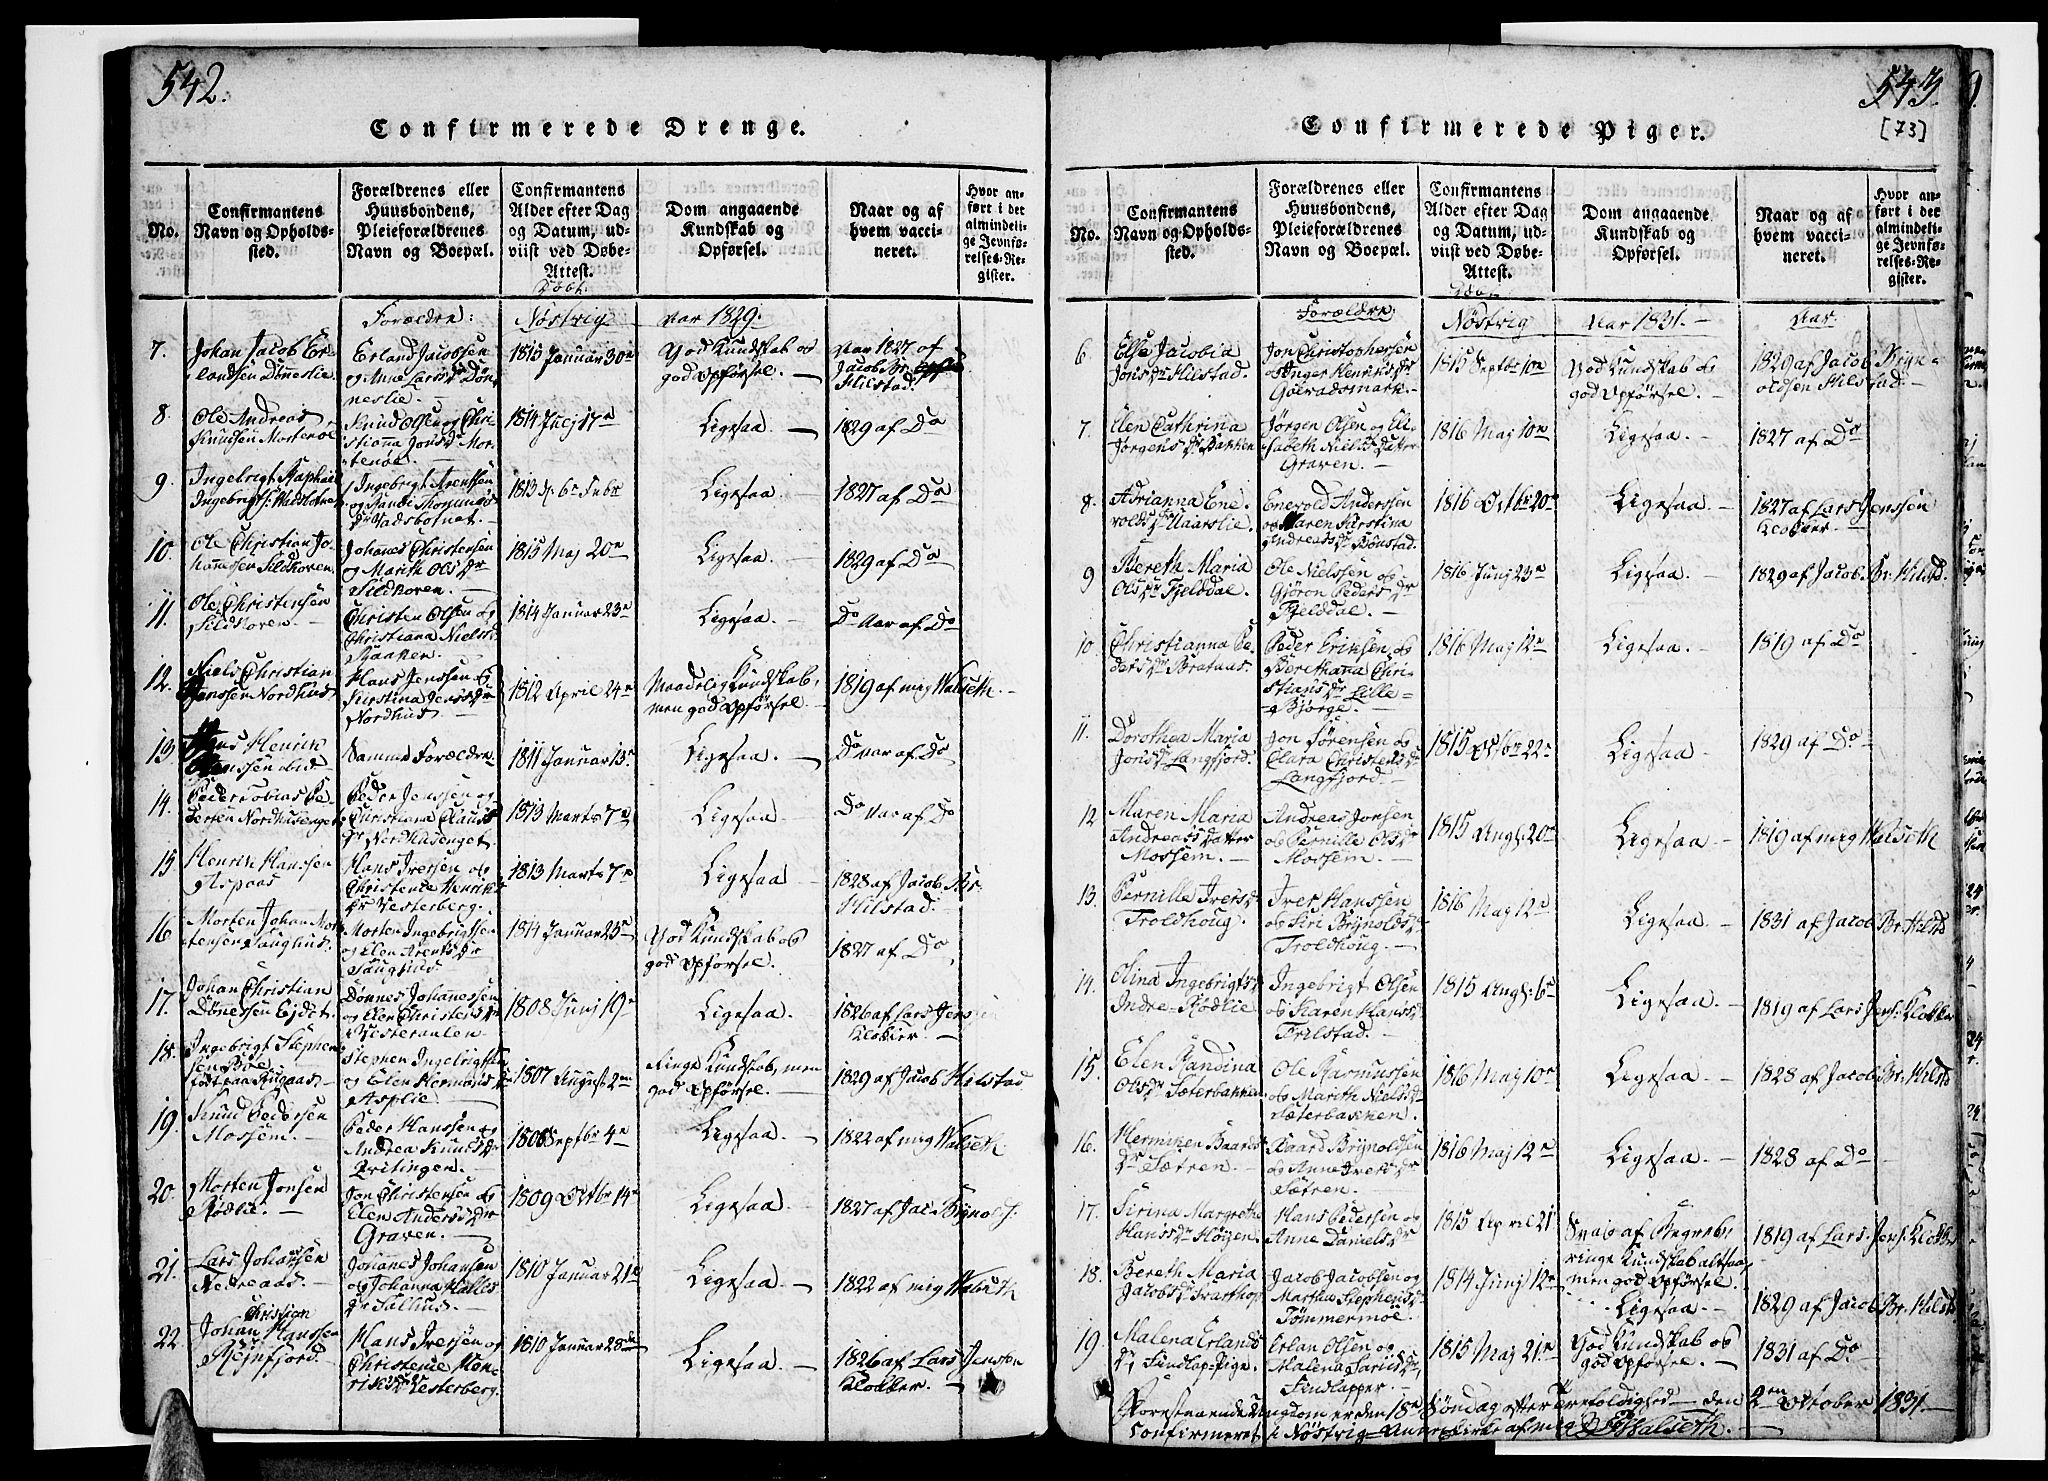 542.
Confirmerede Drenge.
No.
Confirmantens Navn og Opholds-sted.
Forældrenes eller Huusbondens, Pleieforældrenes Navn og Boepæl.
Confirmantens Alder efter Dag og Datum, ud-viist ved Døbe-Attest.
Dom angaaende Kundskab og Opførsel.
Naar og af hvem vacci-neret.
Hvor an-ført i det almindeli-ge Jevnfø-relses-Re-gister.
Døbt.
Forældre: Nöstvig var 1829.
7. Johan Jacob Er-
landsen Dönneslie.
Erland Jacobsen
og Anne Larsdr Dön-
neslie.
1815 Januar 30te
God Kundskab og
god Opförsel.
Var 1827 af
Jacob Br.
Hilstad.
8. Ole Andreas
Knudsen Mortenöe
Knud Olsen og Chri-
stianna Jonsdr Mor-
tenöe.
1814 Julj 17de
Ligesaa.
1829 af Do
9. Ingebrigt Raphael
Ingebrigts. Vadsbotnet
Ingebrigt Arentsen
og Randi Thomæs
Dr Vadsbotnet.
1813 d. 6te Febr
Ligesaa.
1827 af Do
10. Ole Christian Jo-
hannesen Sildhoven.
Johanes Christensen
og Marith Olsdr
Sildhoven.
1815 Maj 20de
Ligesaa.
1829 af Do
11. Ole Christensen
Sildhoven.
Christen Olsen og
Christiana Nielsd.
Kaaken.
1814 Januar 23de
Ligesaa.
Do Aar af Do
12. Niels Christian
Hanssen Nordhus
Hans Jenssen og
Kirstina Jensdr
Nordhus
1812 April 24de
Maadelig Kundskab,
men god Opførsel.
1819 af mig Walseth.
13. Hans Henrik
Hanssen ibid
Samme Forældre.
1811 Januar 13de
Ligesaa.
Do Aar af Do
14. Peder Tobias Pe-
dersen Nordhusenget.
Peder Jenssen og
Christiana Clausd
dr Nordhusenget.
1813 Marts 7de
Ligesaa.
Do Aar af Do
15. Henrik Hanssen
Aspaas
Hans Iversen og
Christence Henriks
dr Vesterberg.
1813 Marts 7de
Ligesaa
1828 af Jacob Br.
Hilstad.
16. Morten Johan Mor-
tensen Saughus.
Morten Ingebrigtsen
og Elen Arentsdr
Saughus
1814 Januar 23de
God Kundskab og
god Opførsel.
1827 af Do
17. Johan Christian
Dönnesen Ejdet.
Dønnes Johannessen
og Elen Christensdr
Vesteraalen
1808 Junj 19de
Ligesaa.
1826 af Lars Jenssen
Klokker
18. Ingebrigt Stephen-
sen Böe
Stephen Ingebrigts.
og Elen Hermansdr
Asplie.
1807 August 2den
Ringe Kundskab, men
god Opførsel.
1829 af Jacob Hilstad
19. Knud Pedersen
Mossem.
Peder Hanssen og
Andrea Knudsdr
Qvitingen.
1808 Septbr 4de
Ligesaa.
1822 af mig Walseth
20. Morten Jonsen
Rödlie.
Jon Christensen og
Elen Andersdr
Graven.
1809 Octbr 14de
Ligesaa
1827 af Jacob Brynolds.
21. Lars Johansen
Nedreaas.
Johannes Johansen
og Johanna Halles
dr Salhus.
1810 Januar 21de
Ligesaa.
1822 af mig Walseth
22. Johan Christian Hanssen
Rejnfjord.
Hans Iversen og
Christence Hen-
riksdr Vesterberg.
1810 Januar 28de
Ligesaa.
1826 af Lars Jenssen
Klokker.
543.
[73]
Confirmerede Piger.
No.
Confirmantens Navn og Opholds-sted.
Forældrenes eller Huusbondens, Pleieforældrenes Navn og Boepæl.
Confirmantens Alder efter Dag og Datum, ud-viist ved Døbe-Attest.
Dom angaaende Kundskab og Opførsel.
Naar og af hvem vacci-neret.
Hvor an-ført i det almindeli-ge Jevnfø-relses-Re-gister.
Forældre Nöstvig Aar 1831. Aar
6 Else Jacobia
Jonsdr Hilstad.
Jon Christophersen
og Inger Henriksdr
Golvadsmark.
1815 Septbr 10de
God Kundskab og
god Opførsel.
1820 af Jacob Bryn-
oldsen Hilstad.
7. Elen Cathrina
Jörgensdr Bakken
Jörgen Olsen og Eli-
sabeth Niels Datter
Graven.
1816 Maj 10de
Ligesaa.
1827 af Do
8. Adrianna Ene-
voldsdr Haarslie.
Enevold Anderssen
og Maren Kirstina
Andreasdr Bönstad.
1816 Octbr 20de
Ligesaa.
1827 af Lars Jenssen
Klokker.
9 Bereth Maria
Olsdr Fjelddal.
Ole Nielssen og
Gjöron Pedersdr
Fjelddal.
1816 Junj 23de
Ligesaa.
1829 af Jacob Br. Hilstd.
10. Christianna Pe-
dersdr Brataas.
Peder Eriksen og
Berethana Chri-
stiansdr Lille-
Bjørge.
1816 Maj 12te
Ligesaa.
1819 af Do
11. Dorothea Maria
Jonsdr Langfjord.
Jon Sørensen og
Clara Christensdr
Langfjord.
1815 Octbr 22de
Ligesaa
1829 af Do
12 Maren Maria
Andreas Datter
Mossem.
Andreas Jonsen
og Pernille Olsdr
Mossem.
1815 Augs. 20de
Ligesaa.
1819 af mig Walseth
13. Pernille Iversdr
Troldhoug.
Iver Hanssen
og Siri Brynoldsdr
Troldhoug.
1816 Maj 12te
Ligesaa.
1831 af Jacob Br. Hilstd
14. Olina Ingebrigtsdr
Indre-Rödlie
Ingebrigt Olsen
og Karen Hansdr
Frilstad.
1815 Augs. 6te
Ligesaa.
1819 af Lars Jens. Klokker
15. Elen Randina
Olsdr Sæterbakken
Ole Rasmussen
og Marith Nielsdr
Sæterbakken.
1816 Maj 10de
Ligesaa.
1828 af Jacob Br. Hilstd
16. Herniken Baards
Dr Sætren.
Baard Brynoldsen
og Anne Iversdr
Sætren.
1816 Maj 12te
Ligesaa.
1828 af Do
17. Sirina Margrethe
Hansdr Höyen.
Hans Pedersen og
Anne Danielsdr
1815 April 21
Svag af Begreb,
ringe Kundskab altsaa,
men god Opførsel.
1819 af Lars Jens. Klokker
18. Bereth Maria
Jacobsdr Svarthop
Jacob Jacobsen og
Martha Stephensdr
Tömmermoe.
1814 Junj 12te
Ligesaa
1829 af Jacob Br. Hilstd
19 Malena Erlands
Dr Findlap-Pige.
Erlan Olsen og
Malena Larsdr
Findlapper.
1815 Maj 21de
God Kundskab og
god Opførsel.
1831 af Do
Forestaaende Ungdom er den 18de Söndag efter Trefoldighed — den 2den October 1831.
Confirmeret i Nöstvig Annex Kirke af mig Walseth.